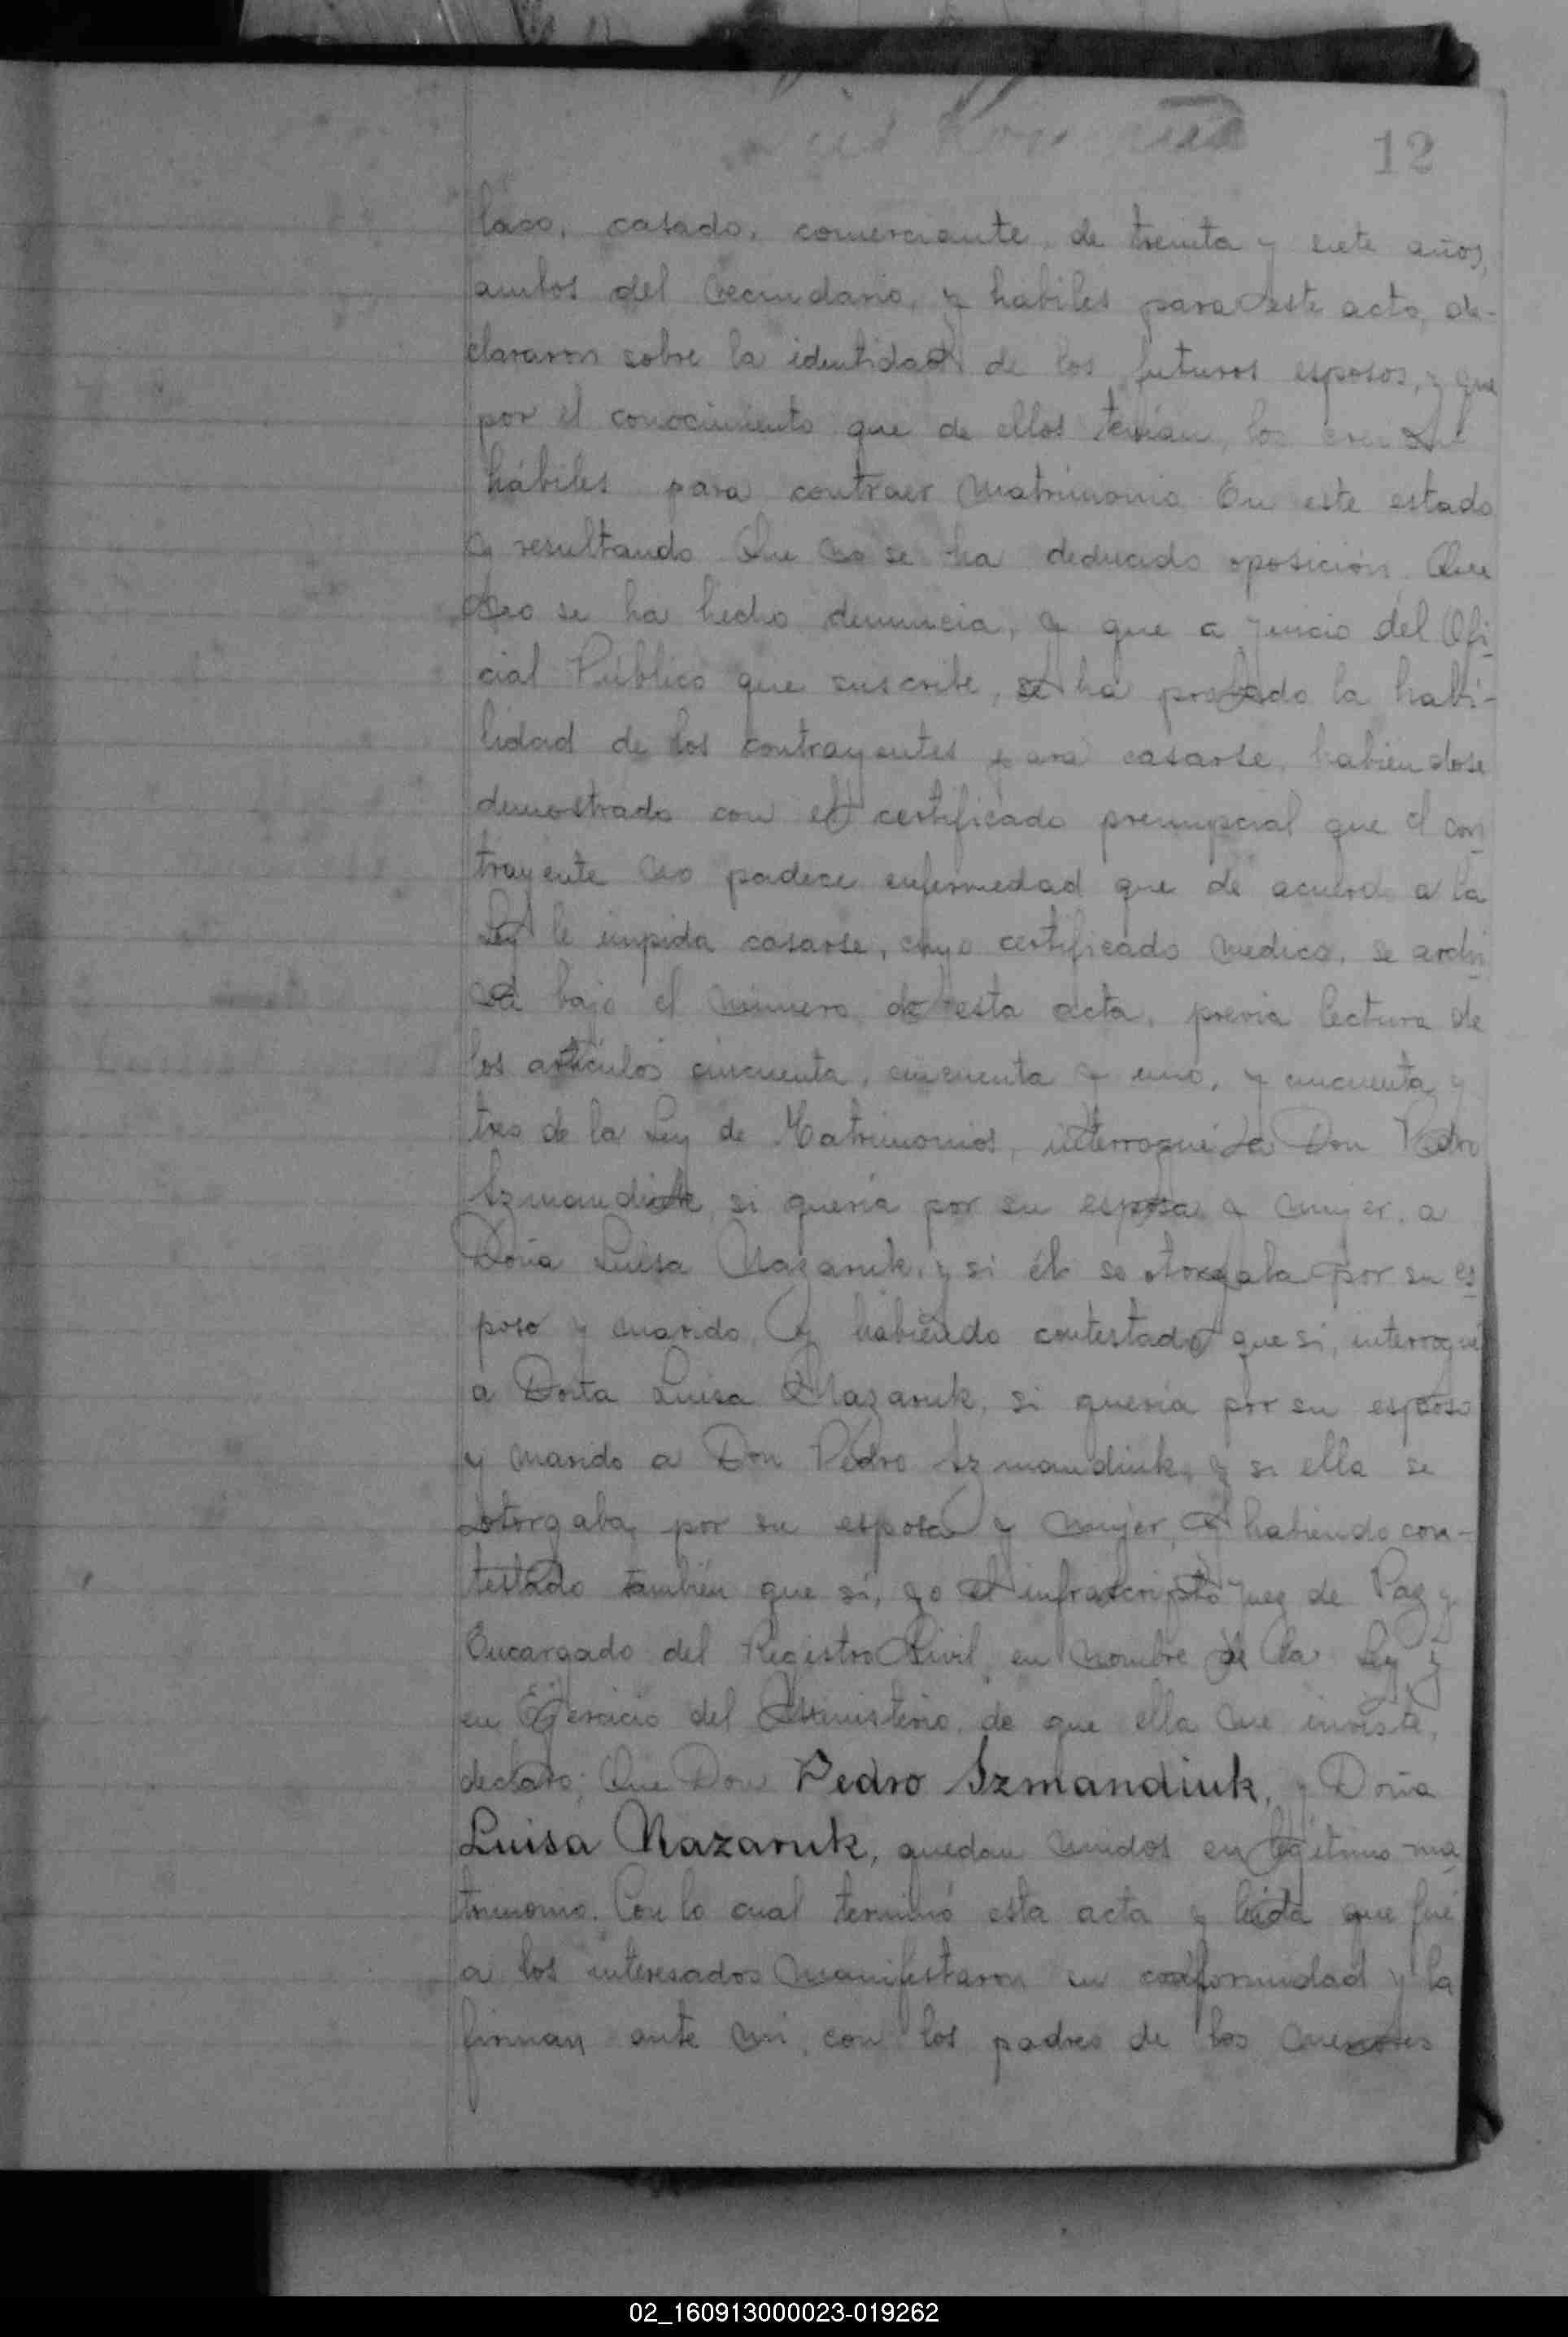 12
laco, casado, comerciante, de treinta y siete años,
ambos del vecindario, y hábiles para este acto, de-
clararon sobre la identidad de los futuros esposos, y que
por el conocimiento que de ellos tenían, los creían
hábiles para contraer matrimonio. En este estado
y resultando. Que no se ha deducido oposición. Que
no se ha hecho denuncia, y que a juicio del Ofi-
cial Público que suscribe, se ha probado la habi-
lidad de los contrayentes para casarse, habiéndose
demostrado con el certificado prenupcial que el con-
trayente no padece enfermedad que de acuerdo a la
Ley le impida casarse, cuyo certificado médico, se archi-
va bajo el número de esta acta, previa lectura de
los artículos cincuenta, cincuenta y uno, y cincuenta y
tres de la Ley de Matrimonios, interrogué a Don Pedro
Szmandiuk, si quería por su esposa y mujer, a
Doña Luisa Nazaruk, y si él se otorgaba por su es-
poso y marido, y habiendo contestado que si, interrogué
a Doña Luisa Nazaruk, si quería por su esposo
y marido a Don Pedro Szmandiuk, y si ella se
otorgaba por su esposa y mujer, y habiendo con-
testado también que sí, yo el infrascripto Juez de Paz y
Encargado del Registro Civil, en nombre de la Ley y
en Ejercicio del Ministerio, de que ella me inviste,
declaro; Que Don Pedro Szmandiuk, y Doña
Luisa Nazaruk, quedan unidos en legítimo ma-
trimonio. Con lo cual terminó esta acta y leída que fué
a los interesados manifestaron su conformidad y la
firman ante mi, con los padres de los menores
02_160913000023-019262